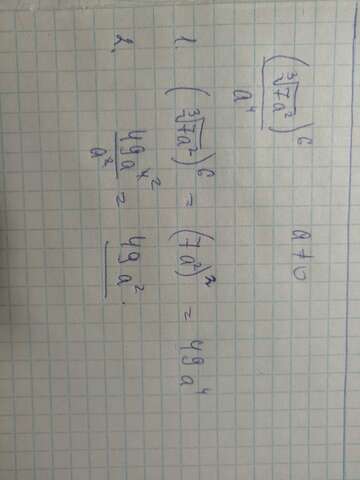 (∛7a²)⁶ / a⁴ a≠0
1. (∛7a²)⁶ = (7a²)² = 49a⁴
2. 49a⁴² / a² = 49a².